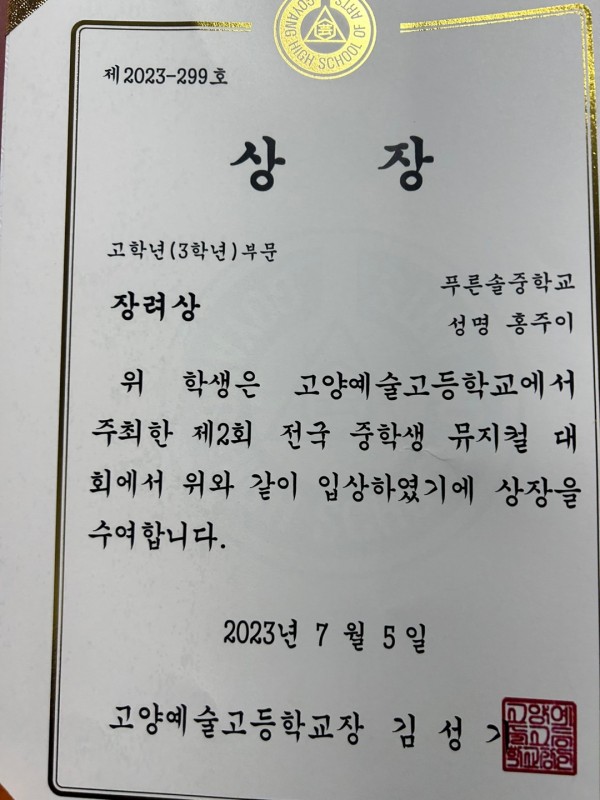 GOYANG HIGH SCHOOL OF ARTS
제2023-299호
상 장
고학년(3학년)부문
푸른솔중학교
장려상
성명 홍주이
위 학생은 고양예술고등학교에서
주최한 제2회 전국 중학생 뮤지컬 대
회에서 위와 같이 입상하였기에 상장을
수여합니다.
2023년 7 월 5 일
고양예술고등학교장 김 성
고양예
술고등
학교장인